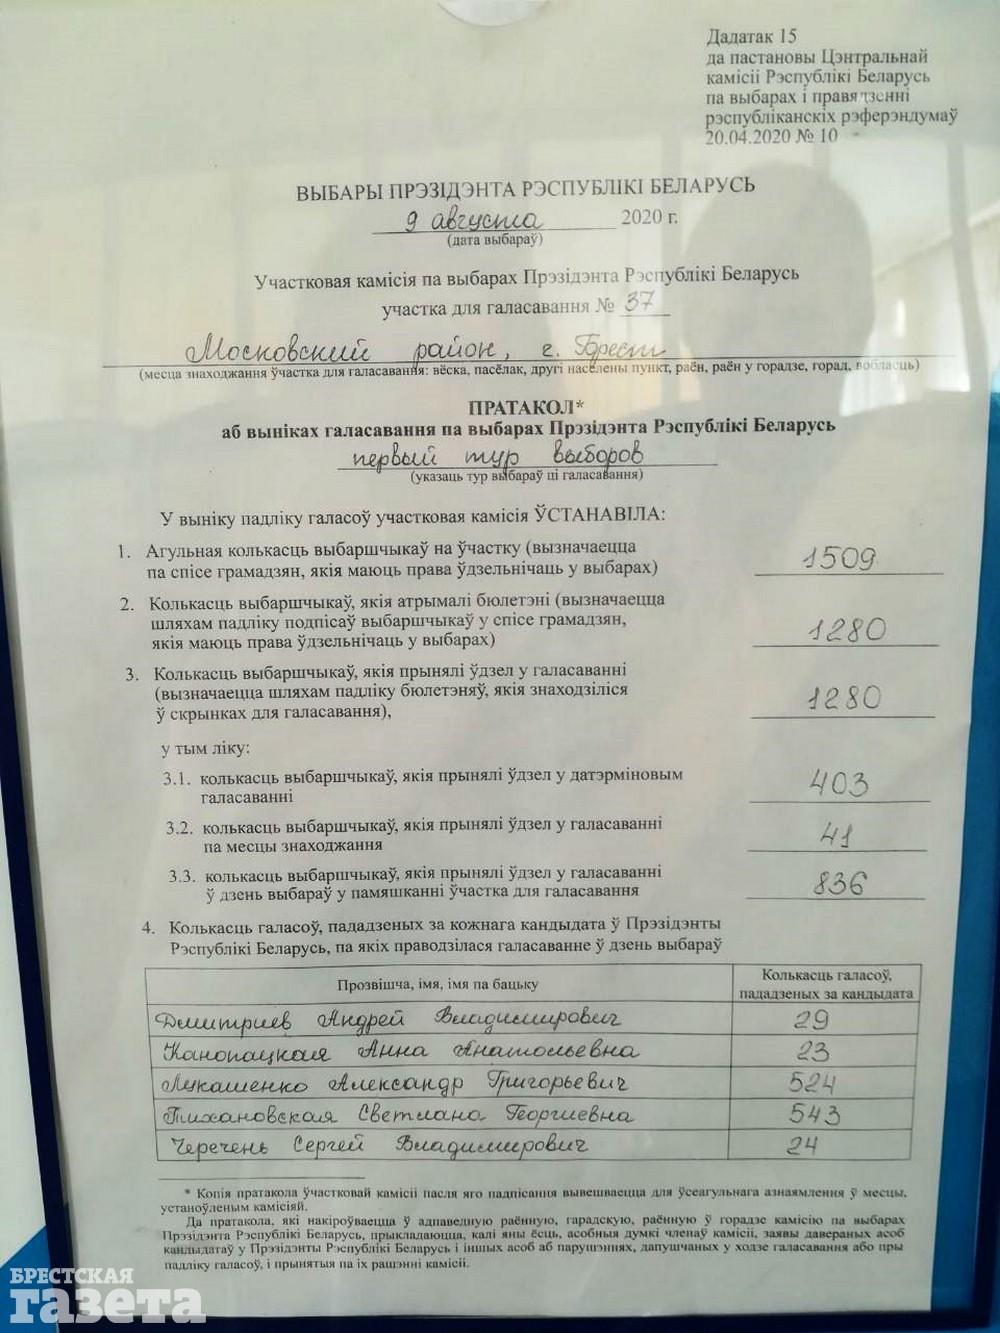 Дадатак 15
да пастановы Цэнтральнай
камісіі Рэспублікі Беларусь
па выбарах і правядзенні
рэспубліканскіх рэферэндумаў
20.04.2020 № 10
ВЫБАРЫ ПРЭЗІДЭНТА РЭСПУБЛІКІ БЕЛАРУСЬ
9 августа 2020 г.
(дата выбараў)
Участковая камісія па выбарах Прэзідэнта Рэспублікі Беларусь
участка для галасавання № 37
Московский район, г. Брест
(месца знаходжання ўчастка для галасавання: вёска, пасёлак, другі населены пункт, раён, раён у горадзе, горад, вобласць)
ПРАТАКОЛ*
аб выніках галасавання па выбарах Прэзідэнта Рэспублікі Беларусь
первый тур выборов
(указаць тур выбараў ці галасавання)
У выніку падліку галасоў участковая камісія ЎСТАНАВІЛА:
1. Агульная колькасць выбаршчыкаў на ўчастку (вызначаецца
па спісе грамадзян, якія маюць права ўдзельнічаць у выбарах) 1509
2. Колькасць выбаршчыкаў, якія атрымалі бюлетэні (вызначаецца
шляхам падліку подпісаў выбаршчыкаў у спісе грамадзян,
якія маюць права ўдзельнічаць у выбарах) 1280
3. Колькасць выбаршчыкаў, якія прынялі ўдзел у галасаванні
(вызначаецца шляхам падліку бюлетэняў, якія знаходзіліся
ў скрынках для галасавання), 1280
у тым ліку:
3.1. колькасць выбаршчыкаў, якія прынялі ўдзел у датэрміновым
галасаванні 403
3.2. колькасць выбаршчыкаў, якія прынялі ўдзел у галасаванні
па месцы знаходжання 41
3.3. колькасць выбаршчыкаў, якія прынялі ўдзел у галасаванні
ў дзень выбараў у памяшканні ўчастка для галасавання 836
4. Колькасць галасоў, пададзеных за кожнага кандыдата ў Прэзідэнты
Рэспублікі Беларусь, па якіх праводзілася галасаванне ў дзень выбараў
Прозвішча, імя, імя па бацьку
Колькасць галасоў,
пададзеных за кандыдата
Дмитриев Андрей Владимирович 29
Канопацкая Анна Анатольевна 23
Лукашенко Александр Григорьевич 524
Тихановская Светлана Георгиевна 543
Черечень Сергей Владимирович 24
* Копія пратакола ўчастковай камісіі пасля яго падпісання вывешваецца для ўсеагульнага азнаямлення ў месцы,
устаноўленым камісіяй.
Да пратакола, які накіроўваецца ў адпаведную раённую, гарадскую, раённую ў горадзе камісію па выбарах
Прэзідэнта Рэспублікі Беларусь, прыкладаюцца, калі яны ёсць, асобныя думкі членаў камісіі, заявы давераных асоб
кандыдатаў у Прэзідэнты Рэспублікі Беларусь і іншых асоб аб парушэннях, дапушчаных у ходзе галасавання або пры
падліку галасоў, і прынятыя па іх рашэнні камісіі.
БРЕСТСКАЯ
газета